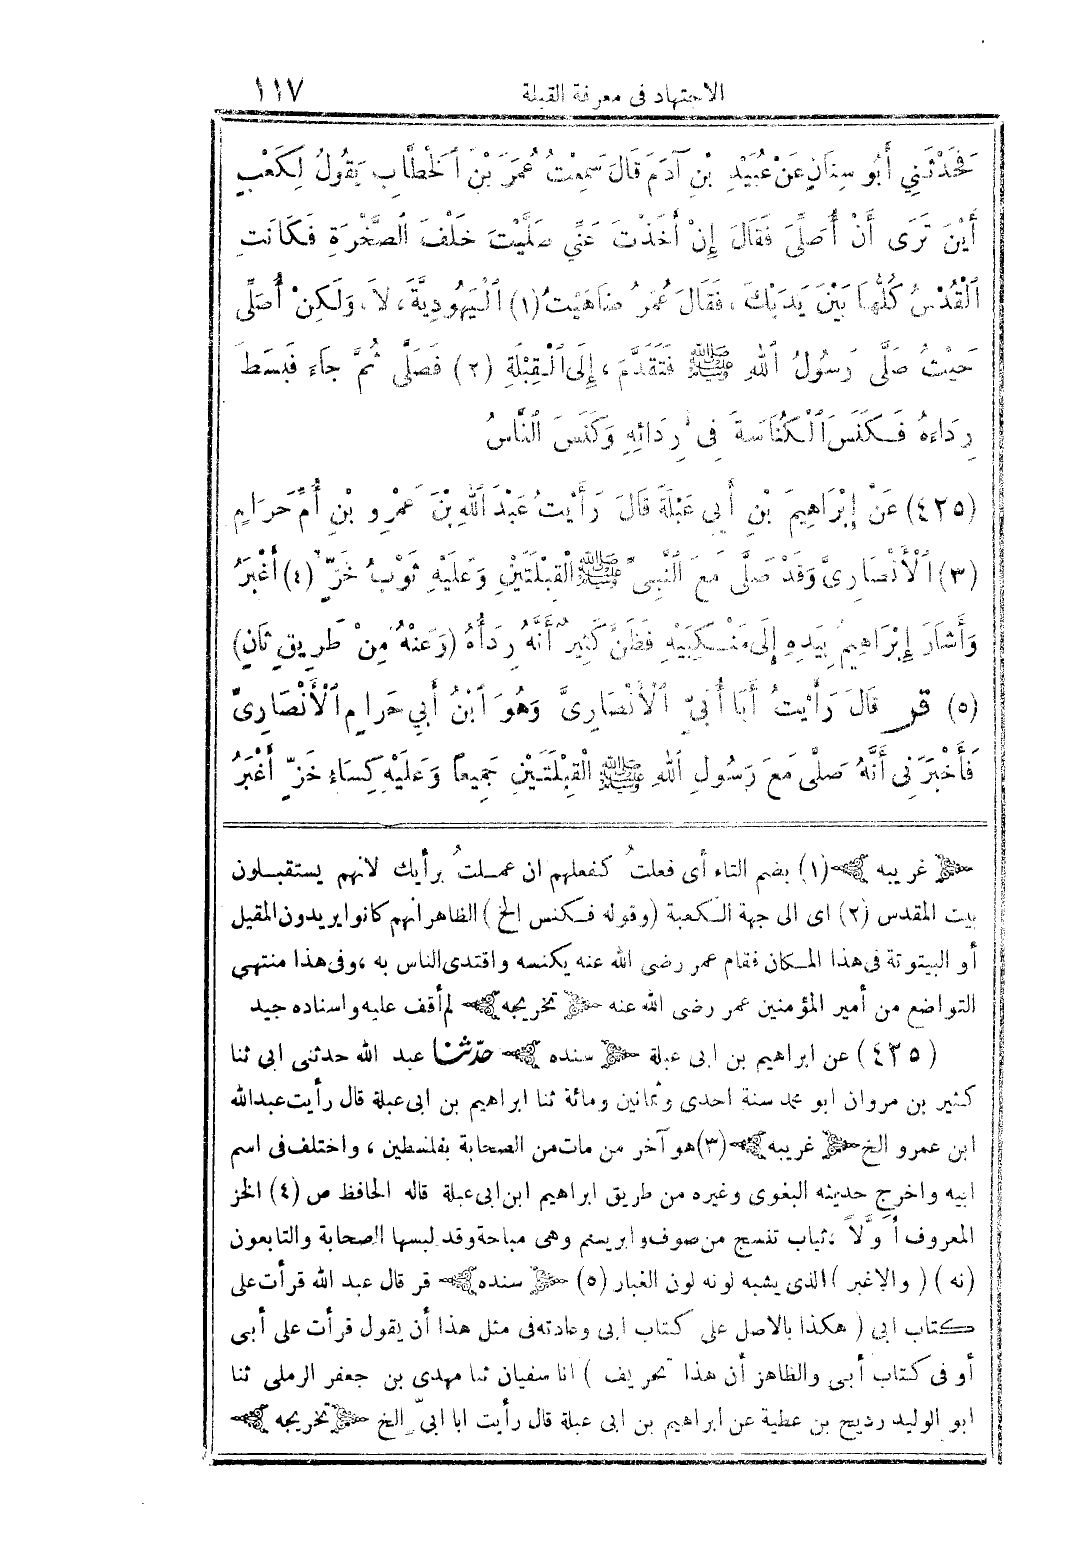 الاجتهاد فى معرفة القبلة ١١٧
فَحَدَّثَنِي أَبُو سِنَانٍ عَنْ عُبَيْدِ بْنِ آدَمَ قَالَ سَمِعْتُ عُمَرَ بْنَ ٱلْخَطَّابِ يَقُولُ لِكَعْبٍ
أَيْنَ تَرَى أَنْ أُصَلِّىَ فَقَالَ إِنْ أَخَذْتَ عَنِّي صَلَّيْتَ خَلْفَ ٱلصَّخْرَةِ فَكَانَتِ
ٱلْقُدْسُ كُلُّهَا بَيْنَ يَدَيْكَ، فَقَالَ عُمَرُ ضَاهَيْتُ (١) ٱلْيَهُودِيَّةَ، لاَ، وَلَكِنْ أُصَلِّى
حَيْثُ صَلَّى رَسُولُ ٱللهِ ﷺ فَتَقَدَّمَ، إِلَى ٱلْقِبْلَةِ (٢) فَصَلَّى ثُمَّ جَاءَ فَبَسَطَ
رِدَاءَهُ فَكَنَسَ ٱلْكُنَاسَةَ فِى رِدَائِهِ وَكَنَسَ النَّاسُ
(٤٣٥) عَنْ إِبْرَاهِيمَ بْنِ أَبِي عَبْلَةَ قَالَ رَأَيْتُ عَبْدَ اللهِ بْنَ عَمْرِو بْنِ أُمِّ حَرَامٍ
(٣) ٱلْأَنْصَارِىَّ وَقَدْ صَلَّى مَعَ ٱلنَّبِىِّ ﷺ الْقِبْلَتَيْنِ وَعَلَيْهِ ثَوْبُ خَزٍّ (٤) أَغْبَرُ
وَأَشَارَ إِبْرَاهِيمُ بِيَدِهِ إِلَى مَنْكِبَيْهِ فَظَنَّ كَثِيرٌ أَنَّهُ رِدَاءٌ (وَعَنْهُ مِنْ طَرِيقٍ ثَانٍ)
(٥) قر قَالَ رَأَيْتُ أَبَا أُبَىٍّ ٱلْأَنْصَارِىَّ وَهُوَ ٱبْنُ أَبِي حَرَامٍ ٱلْأَنْصَارِىُّ
فَأَخْبَرَنِى أَنَّهُ صَلَّى مَعَ رَسُولِ ٱللهِ ﷺ الْقِبْلَتَيْنِ جَمِيعاً وَعَلَيْهِ كِسَاءُ خَزٍّ أَغْبَرُ
غريبه (١) بضم التاء أى فعلتُ كفعلهم ان عملتُ برأيك لانهم يستقبلون
بيت المقدس (٢) اى الى جهة الكعبة (وقوله فكنس الخ) الظاهر انهم كانوا يريدون المقيل
أو البيتوتة فى هذا المكان فقام عمر رضى الله عنه يكنسه واقتدى الناس به ، وفى هذا منتهى
التواضع من أمير المؤمنين عمر رضى الله عنه تخريجه لم أقف عليه واسناده جيد
(٤٣٥) عن ابراهيم بن ابى عبلة سنده حدّثنا عبد الله حدثنى ابى ثنا
كثير بن مروان ابو محمد سنة احدى وثمانين ومائة ثنا ابراهيم بن ابى عبلة قال رأيت عبدالله
ابن عمرو الخ غريبه (٣) هو آخر من مات من الصحابة بفلسطين ، واختلف فى اسم
ابيه واخرج حديثه البغوى وغيره من طريق ابراهيم ابن ابى عبلة قاله الحافظ ص (٤) الخز
المعروف أوَّلاً ، ثياب تنسج من صوف وابريسم وهى مباحة وقد لبسها الصحابة والتابعون
(نه) (والاغبر) الذى يشبه لونه لون الغبار (٥) سنده قر قال عبد الله قرأت على
كتاب ابى (هكذا بالاصل على كتاب ابى وعادته فى مثل هذا أن يقول قرأت على أبى
أو فى كتاب أبى والظاهر أن هذا تحريف) انا سفيان ثنا مهدى بن جعفر الرملى ثنا
ابو الوليد رديح بن عطية عن ابراهيم بن ابى عبلة قال رأيت ابا ابىّ الخ تخريجه